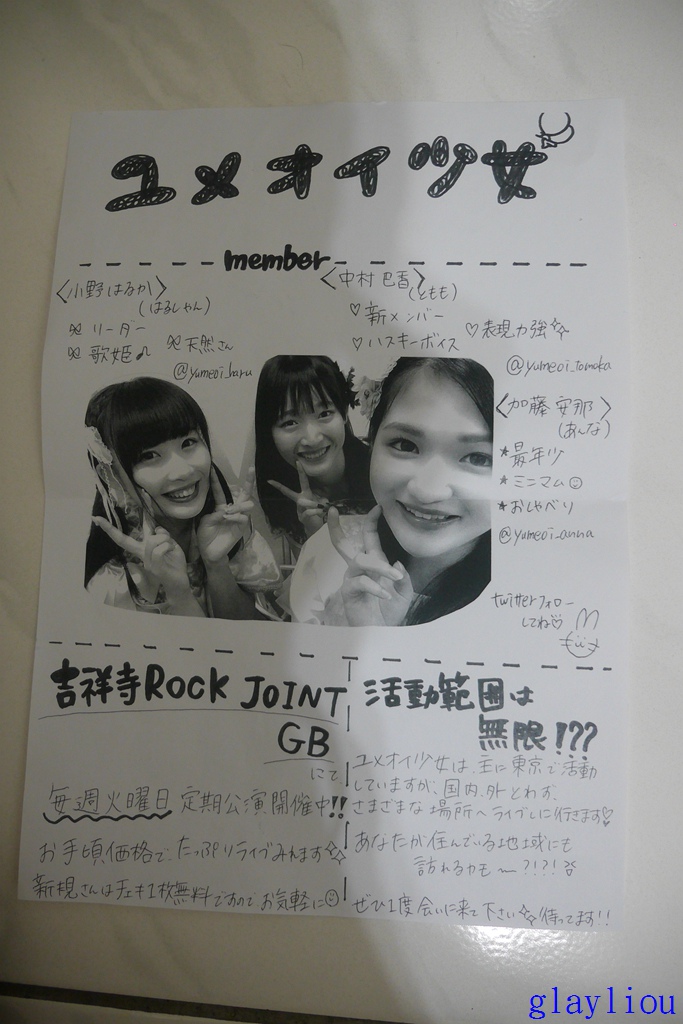 ユメオイ少女
member
〈小野はるか〉
(はるしゃん)
リーダー
歌姫♪
天然さん
@yumeoi_haru
〈中村巴香〉
(ともも)
♡新メンバー
♡ハスキーボイス
♡表現力強☆
@yumeoi_tomoka
〈加藤安那〉
(あんな)
★最年少
★ミニマム☺
★おしゃべり
@yumeoi_anna
twitterフォロー
してね♡
吉祥寺ROCK JOINT
GB
にて
毎週火曜日 定期公演開催中!!
お手頃価格で、たっぷりライブみれます☆
新規さんはチェキ1枚無料ですのでお気軽に☺
活動範囲は
無限!??
ユメオイ少女は、主に東京で活動
していますが、国内、外とわず、
さまざまな場所へライブしに行きます♡
あなたが住んでいる地域にも
訪れるカモ〜?!?!
ぜひ1度会いに来て下さい☆待ってます!!
glayliou